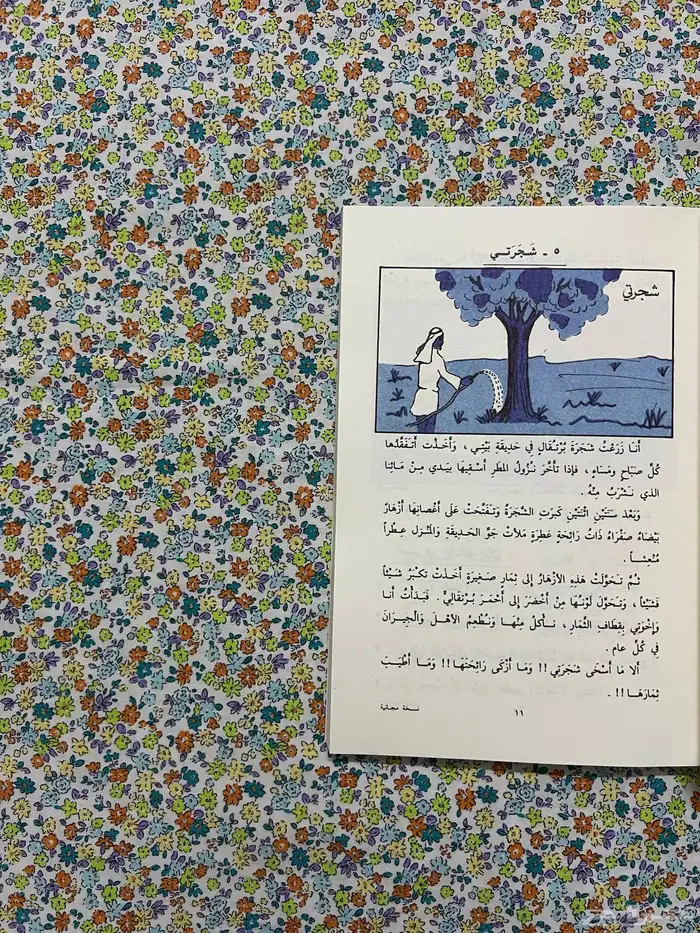 ٥ - شَجَرَتـي
شجرتي
أنـا زَرَعْتُ شَجَرَةَ بُرْتُقَالٍ في حَديقَةِ بَيْتِـي ، وَأَخَـذْت أَتَفَقَّدُها
كُلَّ صَبَاحٍ وَمَسَاءٍ ، فإذا تأخَّرَ نُـزُولُ المَطَرِ أسْقِيهَا بِيَدي مِـنْ مَائِنَا
الذي نَشْرَبُ مِنْهُ .
وَبَعْدَ سَنَتَيْنِ اثْنَتَيْنِ كَبِرَتِ الشَّجَرَةُ وَتَفَتَّحَتْ عَلَى أغْصَانِهَا أزْهَارٌ
بَيْضَاءُ صَفْرَاءُ ذَاتُ رَائِحَةٍ عَطِرَةٍ مَلَأَتْ جَوَّ الحَديقَةِ وَالمَنْزِل عِطْراً
مُنْعِشـاً .
ثُـمَّ تَحَوَّلَتْ هَذِهِ الأزْهَارُ إلى ثِمَارٍ صَغِيرَةٍ أَخَذَتْ تَكْبَرُ شَيْئاً
فَشَيْئاً ، وَتَحَوَّلَ لَوْنُهَا مِنْ أَخْضَرَ إلى أَحْمَرَ بُرْتُقَالِيٍّ . فَبَدَأْتُ أنـا
وَإخْوَتي بِقِطافِ الثِّمَارِ ، نـأكُلُ مِنْهَـا وَنُطْعِمُ الأهْلَ وَالْجِيرَانَ
في كُلِّ عام .
ألا مَا أسْخَى شَجَرَتِي !! وَمَا أَزْكَى رَائِحَتَهَا !! وَمَـا أَطْيَبَ
ثِمَارَهَـا !! .
١١
نسخة مجانية